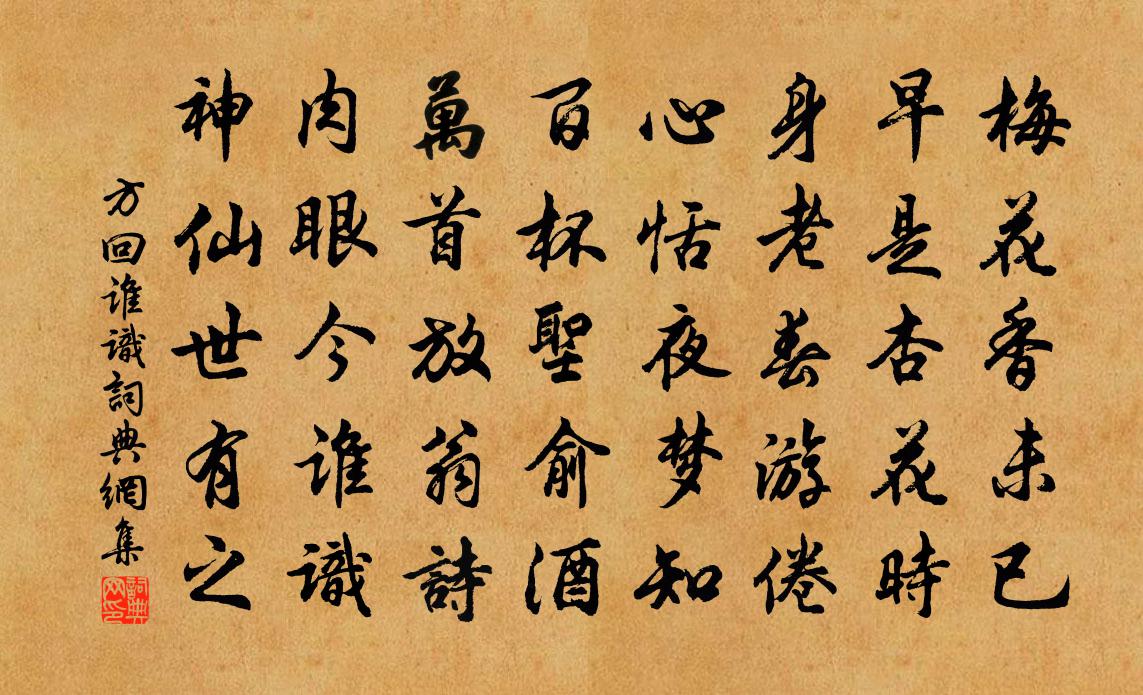 梅花香未已
早是杏花時
身老春游倦
心恬夜梦知
百杯聖俞酒
萬首放翁詩
肉眼今谁識
神仙世有之
方回谁識詞典網集
詞典
网印